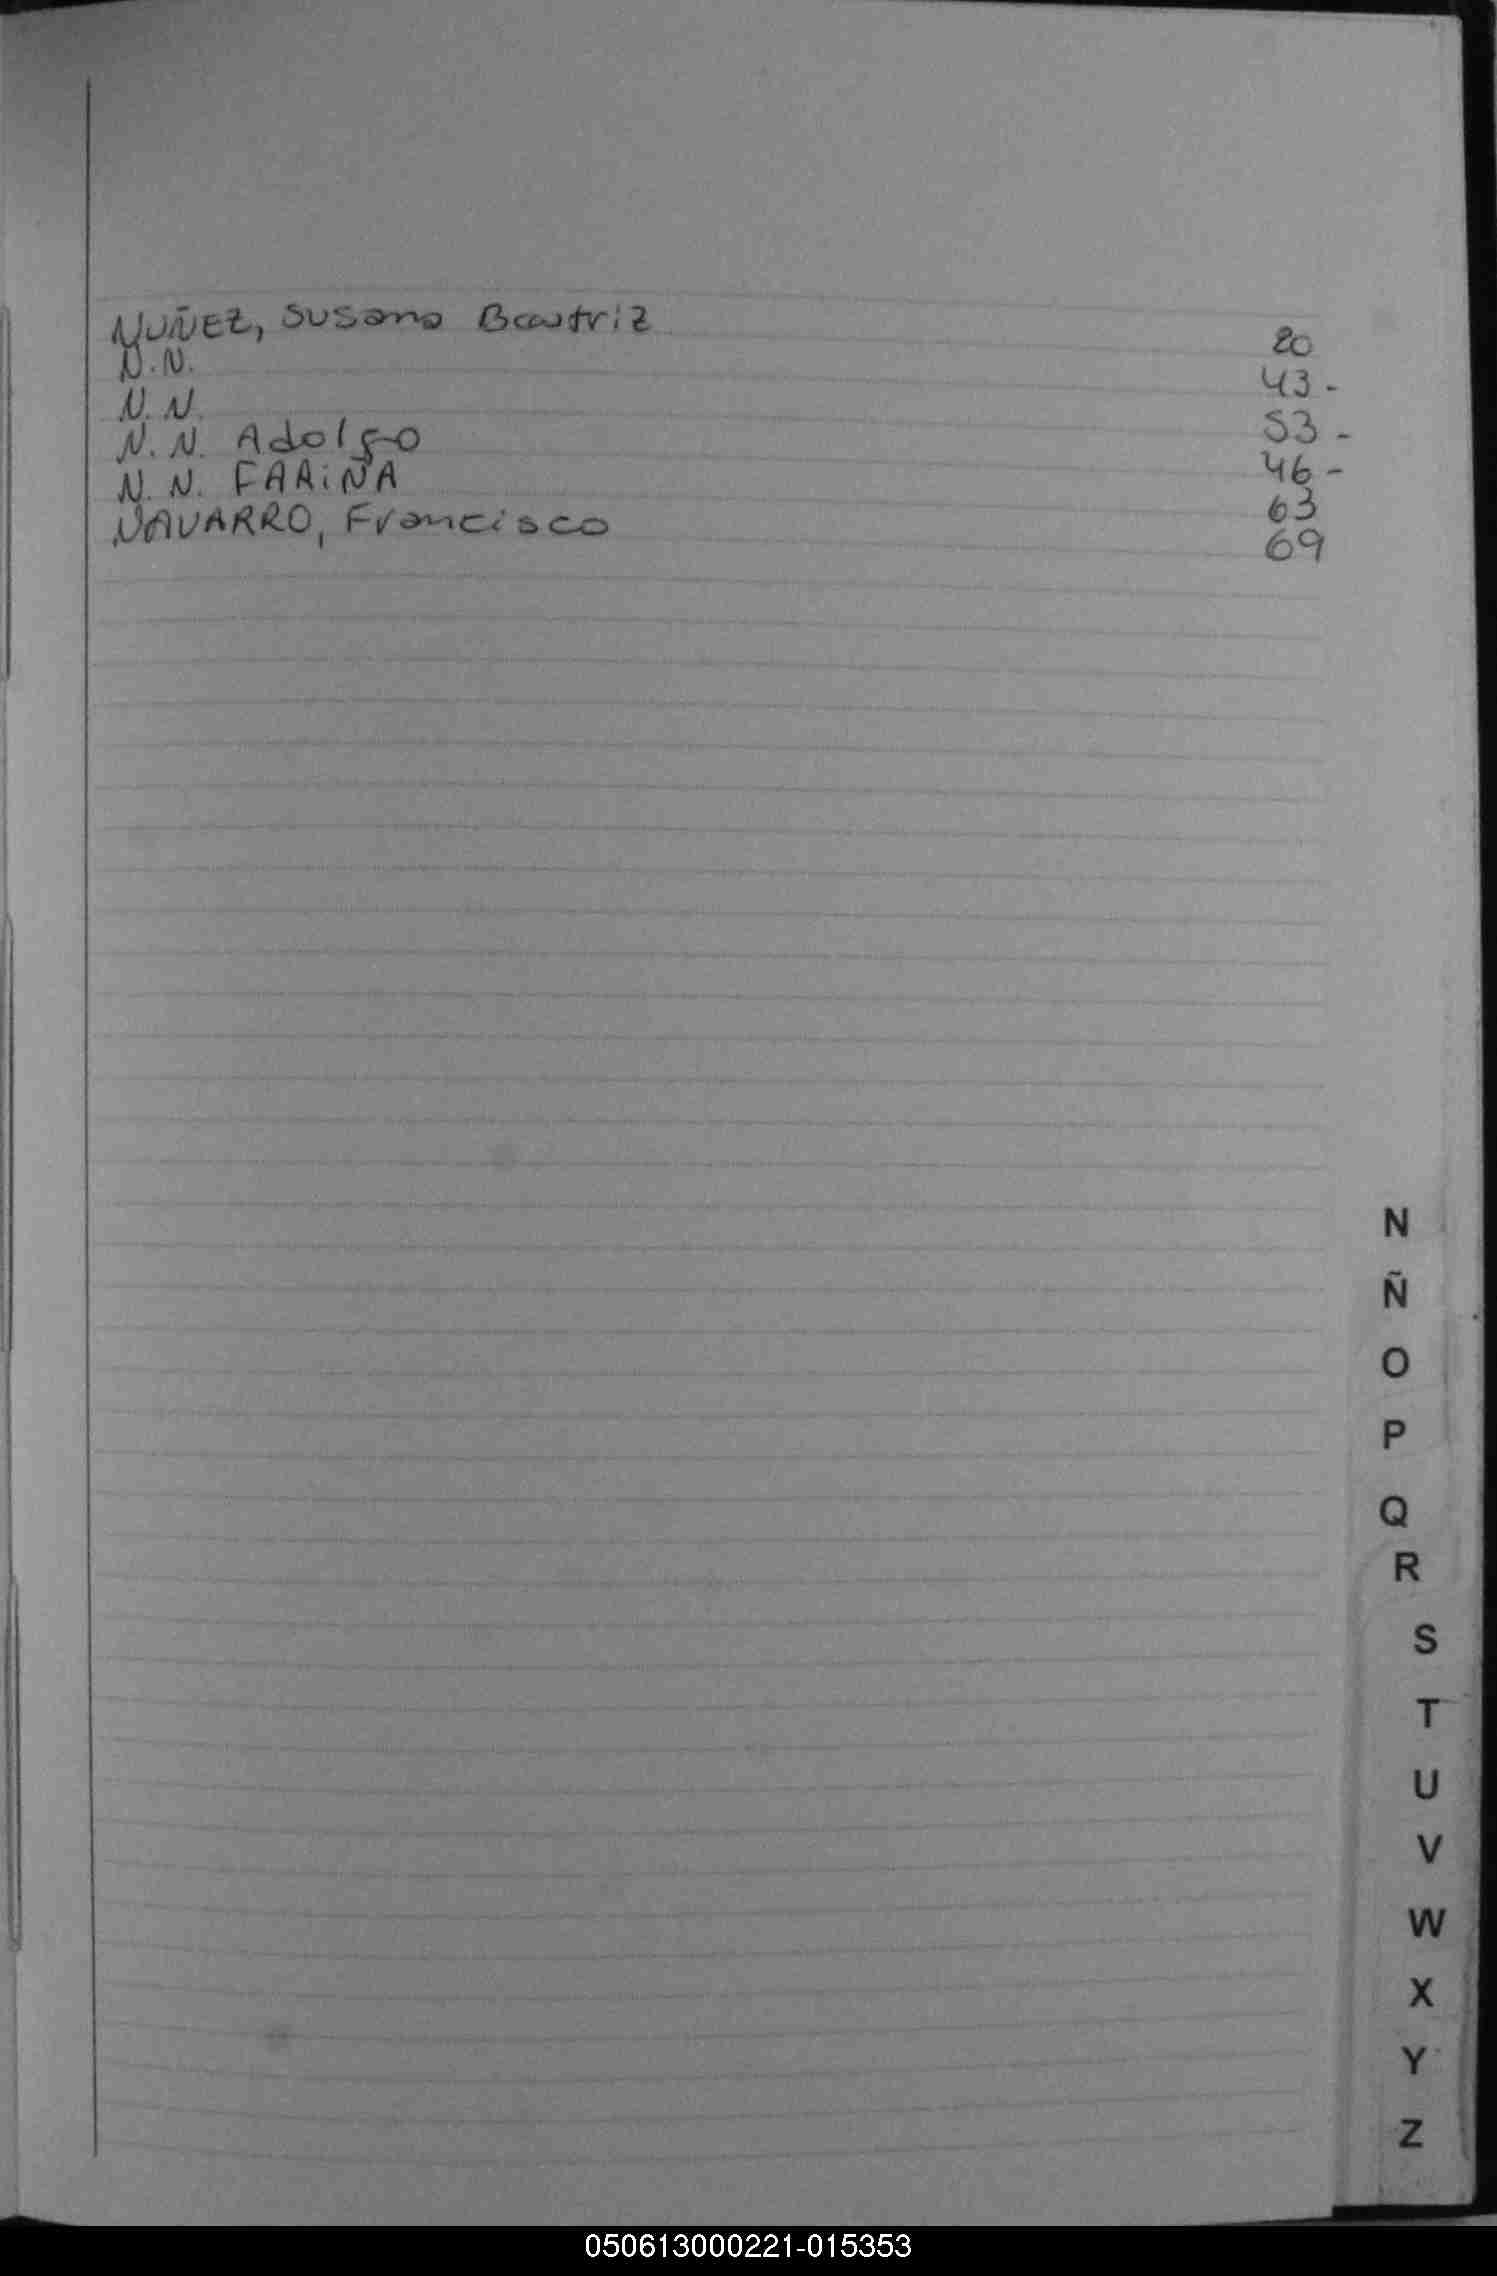 NUÑEZ, Susana Beatriz 20
N.N. 43-
N.N. 53-
N.N. Adolfo 46-
N.N. FARIÑA 63
NAVARRO, Francisco 69
N
Ñ
O
P
Q
R
S
T
U
V
W
X
Y
Z
050613000221-015353